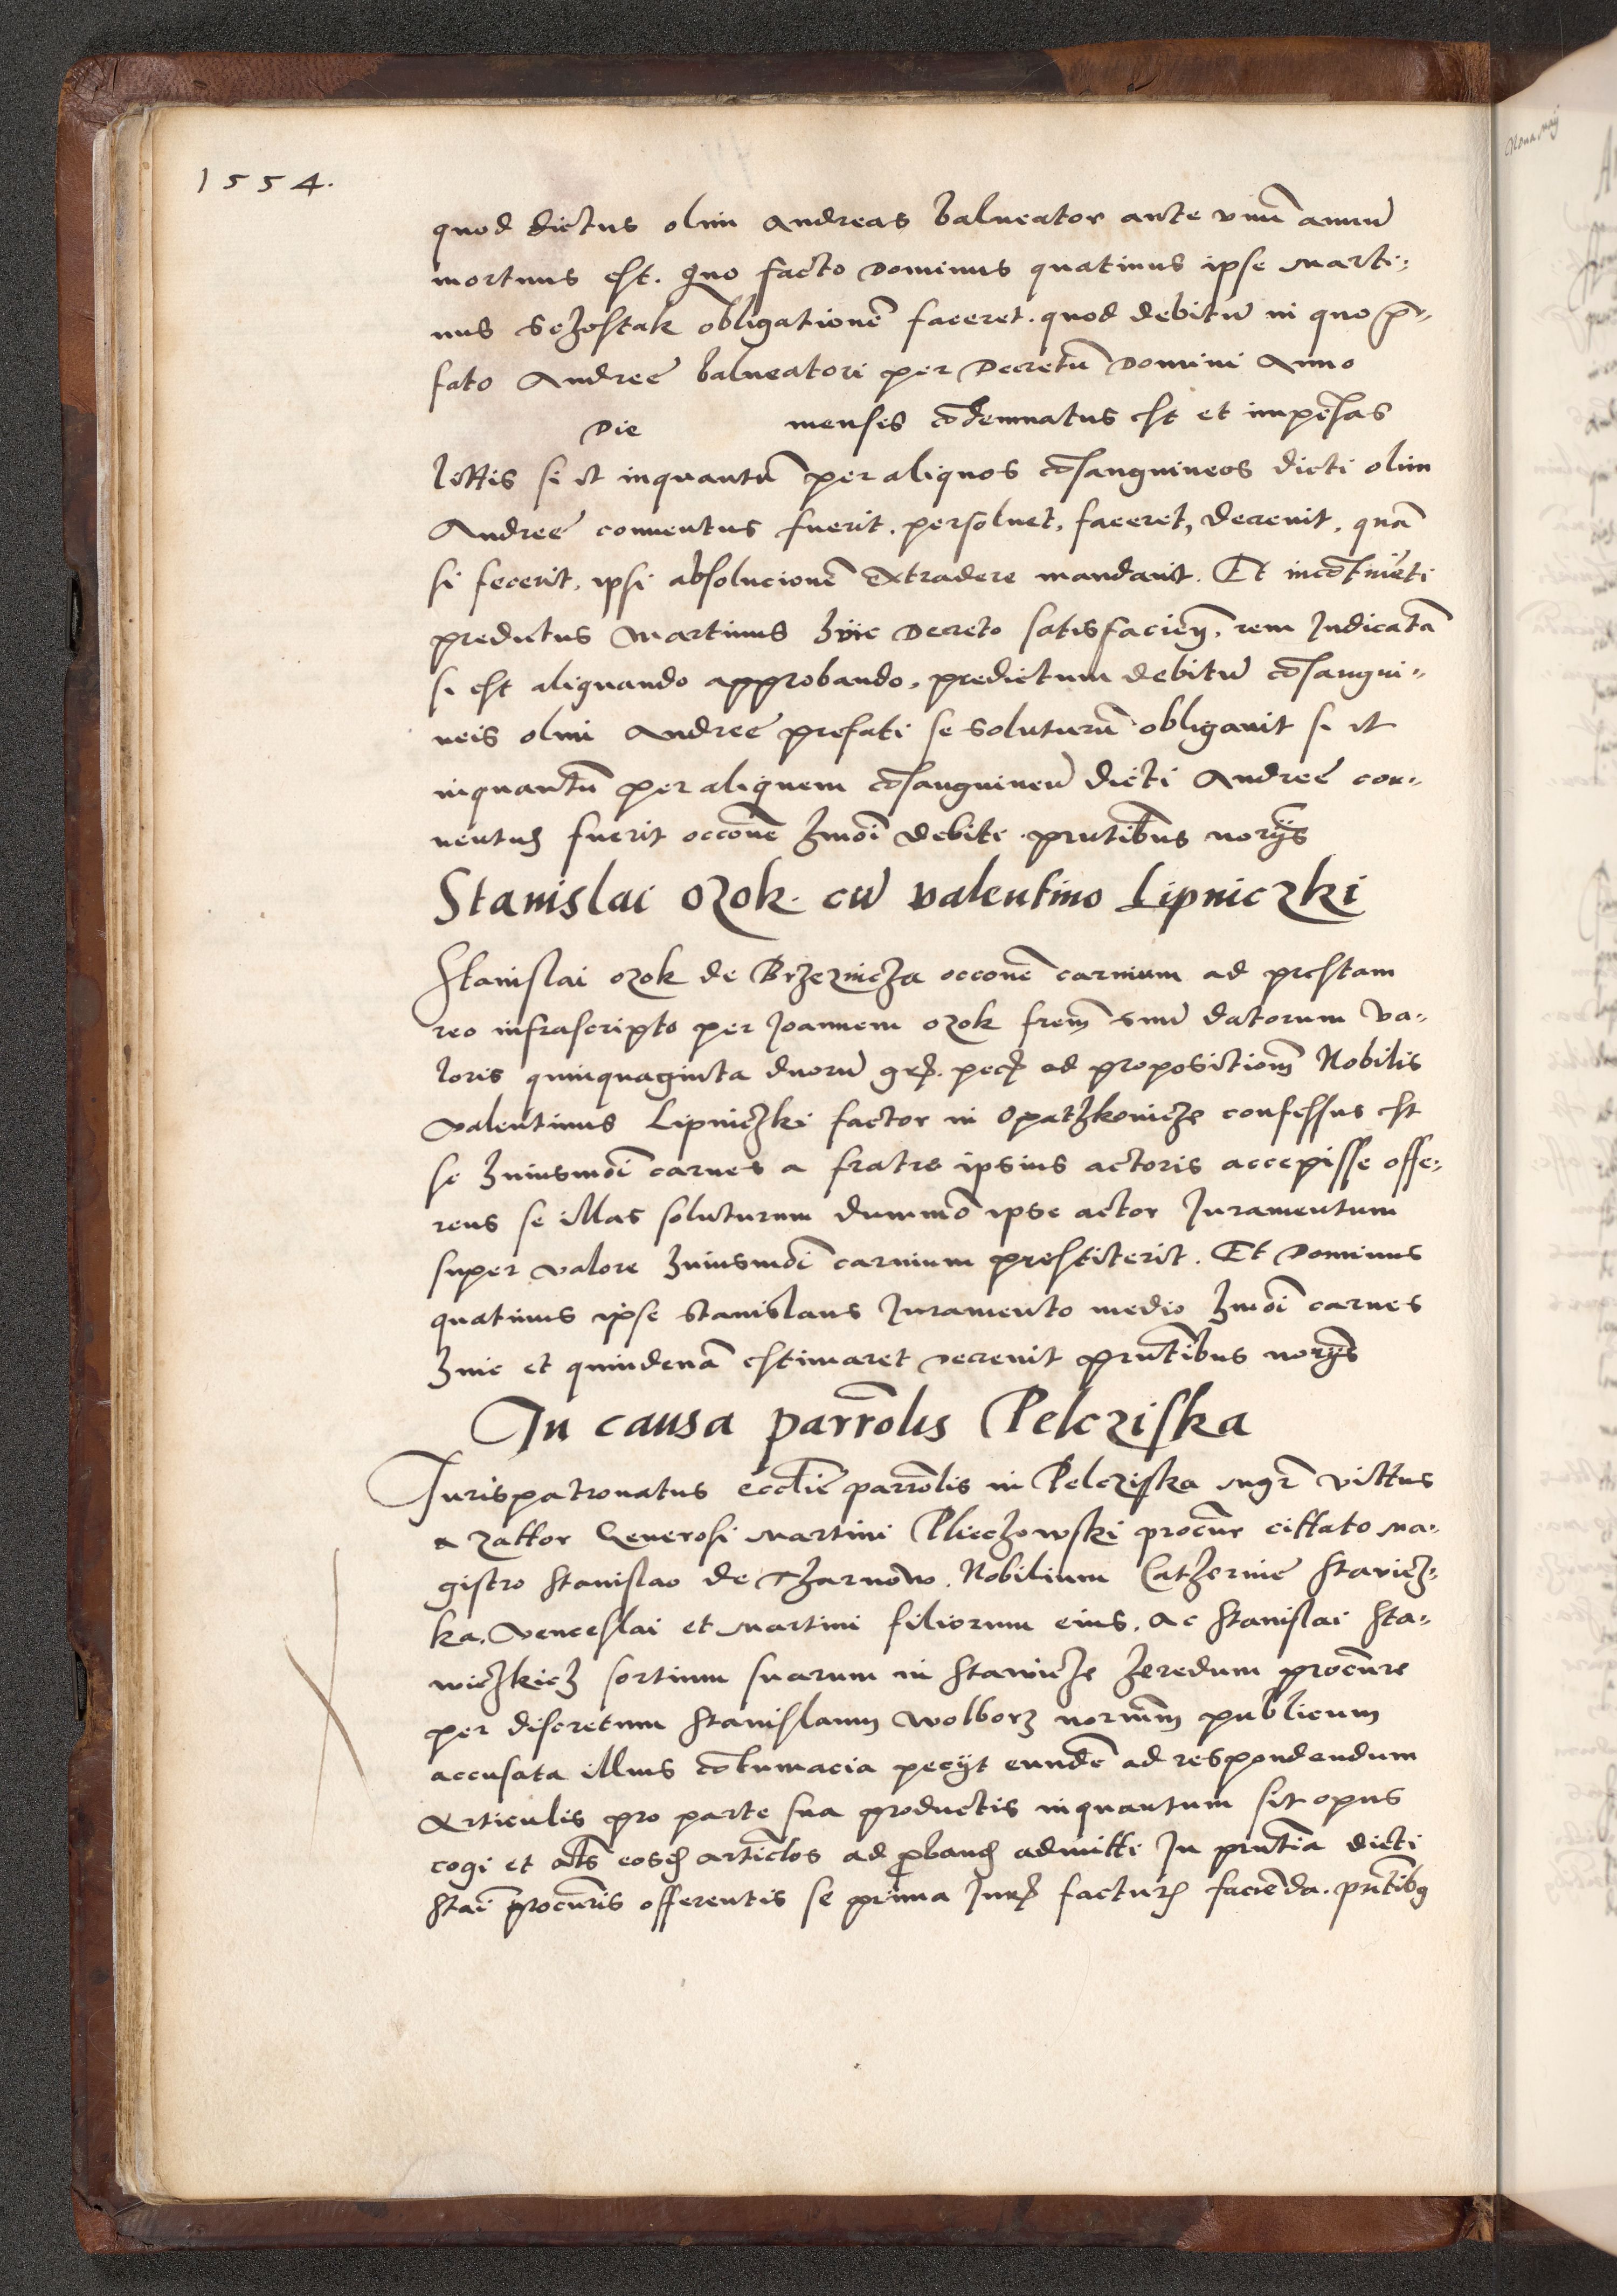 1554.
quod dictus olim Andreas balneator ante vnū annū
mortuus est. Quo facto Dominus quatinus ipse Marti⸗
nus Schostak obligationē faceret. quod debitū in quo p̄⸗
fato Andreę balneatori per Decretū Domini Anno
Die menses cōdemnatus est et impēsas
littis si et inquantū per aliquos cōsanguineos dicti olim
Andreę conuentus fuerit. persoluet, faceret, decreuit, quā
si fecerit, ipsi absolucionē extradere mandauit. Et incōtinēti
predictus Martinus huic Decreto satisfacieñ. rem Iudicatā
si est aliquando approbando, predictum debitū cōsangui⸗
neis olim Andreę prefati se soluturū obligauit si et
inquantū per aliquem cōsanguineū dicti Andreę con⸗
uentus fuerit occōne hmōi debiti. pn̄tibus norijs
Stanislai Ozok. cū Valentino Lipniczki
Stanislai Ozok de Brzeznicza occōnē carnium ad prestam
reo infrascripto per Joannem Ozok frem̄ suū datorum va⸗
loris quinquaginta duorū gr. pecȷ ad propositiom̄ Nobilis
Valentinus Lipniczki factor in Opathkowicze confessus est
se huiusmōi carnes a fratre ipsius actoris accepisse offe⸗
rens se illas soluturum dummō ipse actor Juramentum
super valore huiusmōi carnium prestiterit. Et Dominus
quatinus ipse Stanislaus Juramento medio hmōi carnes
hinc et quindenā estimaret decreuit pn̄tibus norijs
In causa parrōlis Pelcziska
Jurispatronatus ecclīe parrōlis in Pelcziska mgr̄ Vittus
a Zattor Generosi Martini Pliechowski procūr cittato Ma⸗
gistro Stanislao de Tharnow. Nobilium Catherinę Stawicz⸗
ka, Venceslai et Martini filiorum eius. Ac Stanislai Sta⸗
wiczkich sortium suarum in Stawicze heredum procūre
per discretum Stanislaum Wolborz norium̄ publicum
accusata illius cōtumacia pecijt eundē ad respondendum
Articulis pro parte sua productis inquantum sit opus
cogi et al̄s eosdē artic̄los ad ꝓbandȷ admitti In pn̄tia dicti
Stāi procūris offerentis se prima Jurȷ facturȷ faciēda. pn̄tibȝ